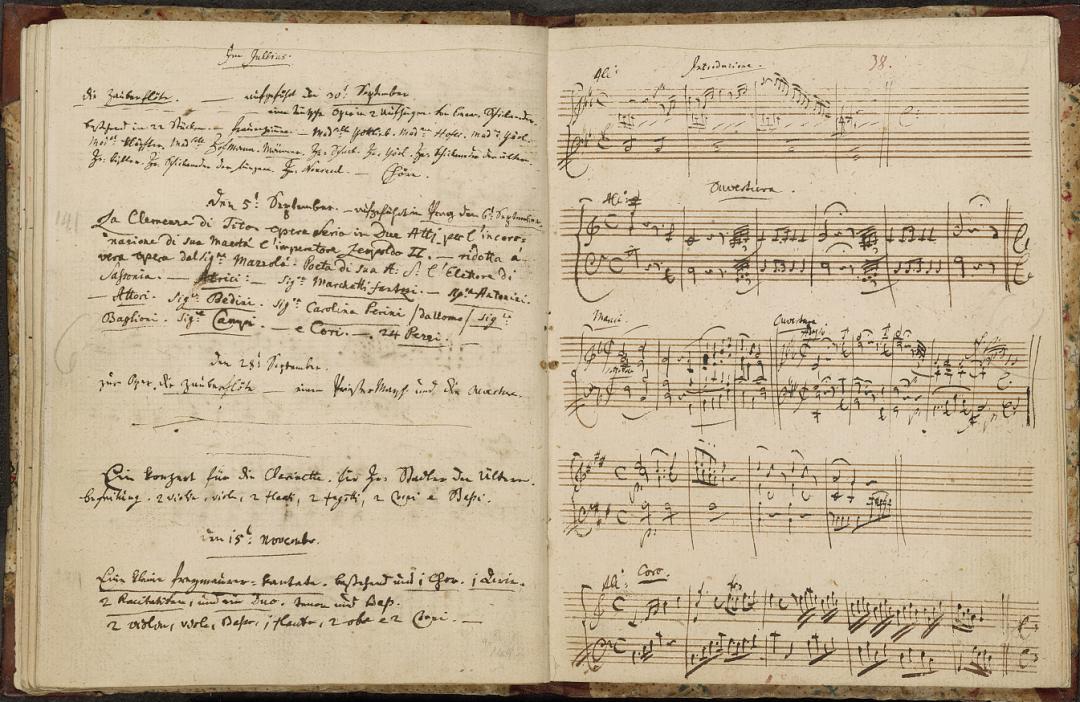 Im Jullius.
die Zauberflöte. — aufgeführt den 30t September
eine teutsche Oper in 2 Aufzügen. von Eman. Schikaneder.
bestehend in 22 Stücken. — frauenzimmer. — Mad:selle Gottlieb. Mad:me Hofer. Mad:me Görl.
Mad:me Klöpfler. Mad:selle Hofmann. Männer. Hr: Schack. Hr: Görl. Hr: Schikaneder der ältere.
Hr: Kistler. Hr: Schikaneder der Jüngere. Hr: Nouseul. — Chöre.
Den 5t September. — aufgeführt in Prag den 6t September.
La Clemenza di Tito. opera Seria in Due Atti. per l'incoro-
nazione di sua maestà l'imperatore Leopoldo II. — ridotta à
vera opera dal Sig:re Mazzolà. Poeta di sua A: S: l'Elettore di
Sassonia. — Atrici: — Sig:ra Marchetti fantozi. — Sig:ra Antonini.
— Attori. Sig:re Bedini. Sig:ra Carolina Perini /da uomo/ Sig:re
Baglioni. Sig:re Campi. — e Cori. — 24 Pezzi. —
den 28t September.
zur Oper. die Zauberflöte — einen Priester Marsch und die Ouverture.
Ein Konzert für die Clarinette. für Hr: Stadler den ältern.
begleitung. 2 violin, viole, 2 flauti, 2 fagotti, 2 Corni e Bassi.
den 15t Novembr.
Eine kleine freymaurer=Kantate. bestehend aus 1 Chor. 1 Arie.
2 Recitativen, und ein Duo. tenor und Bass.
2 violin, viole, Basso, 1 flauto, 2 oboe e 2 Corni. —
38.
All:o Introduzione.
Ouvertura.
All:o
Marcia. Ouvertura
Adagio
All:o Coro.